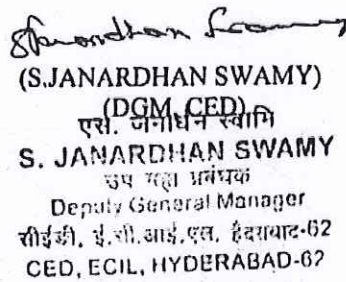 S Janardhan Swamy
(S.JANARDHAN SWAMY)
(DGM, CED)
एस. जनार्धन स्वामि
S. JANARDHAN SWAMY
उप महा प्रबंधक
Deputy General Manager
सीईडी, ई.सी.आई.एल, हैदराबाद-62
CED, ECIL, HYDERABAD-62